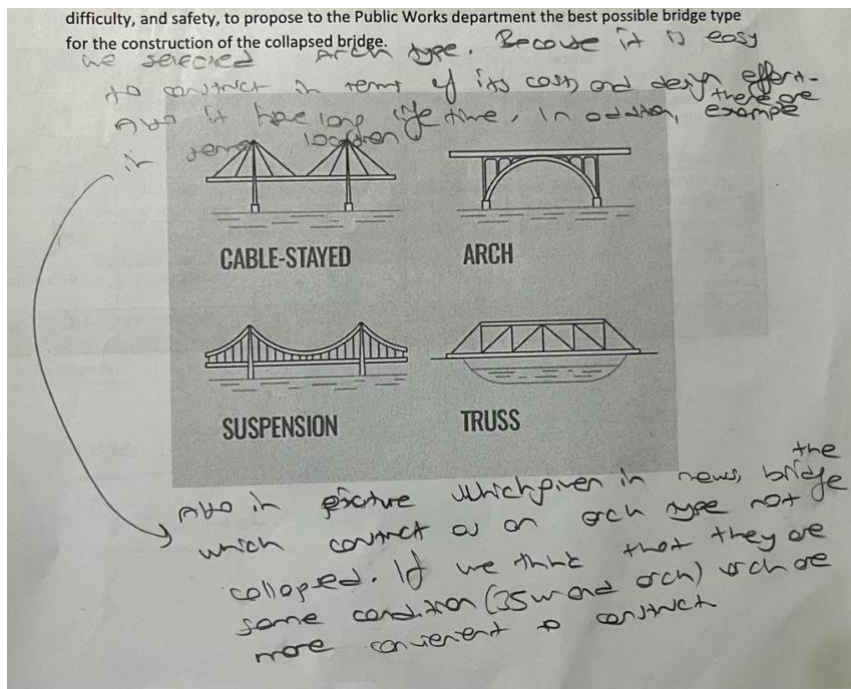 difficulty, and safety, to propose to the Public Works department the best possible bridge type
for the construction of the collapsed bridge.
we selected Arch type. Because it is easy
to construct in terms of its cost, and design effort.
Also it have long life time, In addition, there are example
in terms location
CABLE-STAYED
ARCH
SUSPENSION
TRUSS
Also in picture which given in news, the bridge
which contruct as an arch type not
collapsed. If we think that they are
same condition (35w and arch) arch are
more convenient to construct